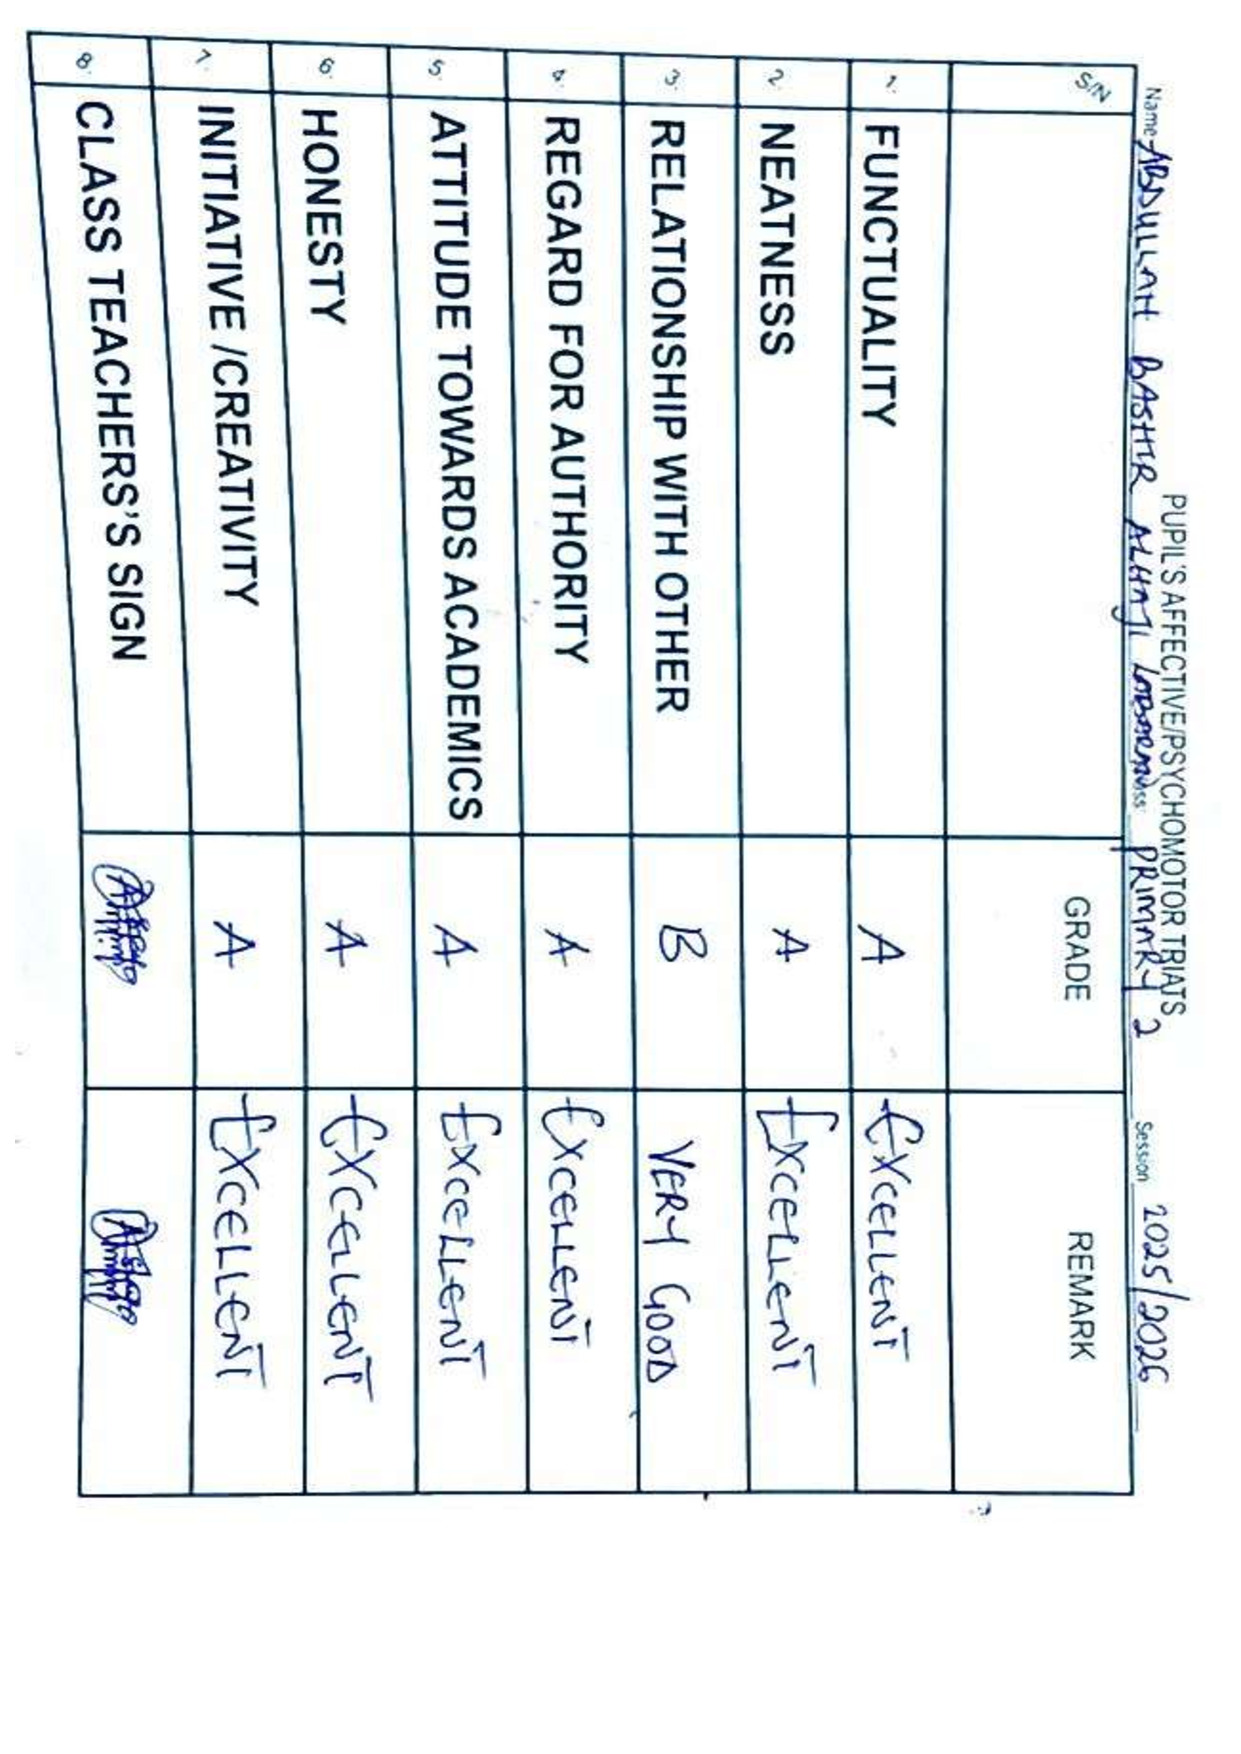 PUPIL'S AFFECTIVE/PSYCHOMOTOR TRIATS
Name ABDULLAH BASHIR ALHAJI Class: PRIMARY 2 Session 2025/2026
S/N GRADE REMARK
1. FUNCTUALITY A EXCELLENT
2. NEATNESS A EXCELLENT
3. RELATIONSHIP WITH OTHER B VERY GOOD
4. REGARD FOR AUTHORITY A EXCELLENT
5. ATTITUDE TOWARDS ACADEMICS A EXCELLENT
6. HONESTY A EXCELLENT
7. INITIATIVE /CREATIVITY A EXCELLENT
8. CLASS TEACHERS'S SIGN